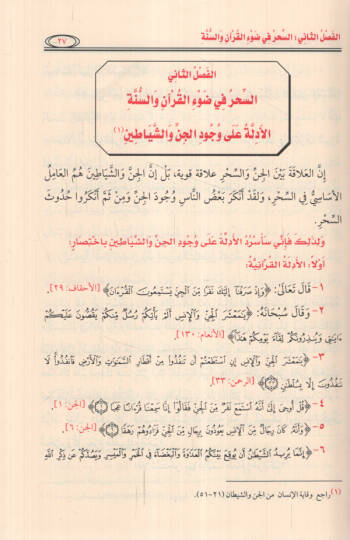 الفَصْلُ الثَّاني : السِّحرُ في ضَوْءِ القُرْآنِ وَالسُّنَّة
٢٧
الفَصْلُ الثَّانِي
السِّحرُ في ضَوْءِ القُرْآنِ وَالسُّنَّةِ
الأَدِلَّةُ عَلَى وُجُودِ الجِنِّ وَالشَّيَاطِينِ(١)
إِنَّ العَلَاقَةَ بَيْنَ الجِنِّ وَالسِّحْرِ علاقة قوية، بَلْ إِنَّ الجِنَّ وَالشَّيَاطِينَ هُمُ العَامِلُ
الأسَاسِيُّ فِي السِّحْرِ، وَلَقَدْ أَنْكَرَ بَعْضُ النَّاسِ وُجُودَ الجِنِّ وَمِنْ ثَمَّ أَنْكَرُوا حُدُوثَ
السِّحْرِ.
وَلِذَلِكَ فَإِنِّي سَأَسْرُدُ الأَدِلَّةَ عَلَى وُجُودِ الجِنِّ وَالشَّيَاطِينِ بِاخْتِصَارٍ:
أَوَّلاً: الأَدِلَّةُ القُرْآنِيَّةُ:
١- قَالَ تَعَالَى: ﴿وَإِذْ صَرَفْنَا إِلَيْكَ نَفَرًا مِنَ الْجِنِّ يَسْتَمِعُونَ الْقُرْءَانَ﴾ [الأحقاف: ٢٩].
٢- وَقَالَ سُبْحَانَهُ: ﴿يَٰمَعْشَرَ الْجِنِّ وَالْإِنسِ أَلَمْ يَأْتِكُمْ رُسُلٌ مِّنكُمْ يَقُصُّونَ عَلَيْكُمْ
ءَايَٰتِي وَيُنذِرُونَكُمْ لِقَاءَ يَوْمِكُمْ هَٰذَا﴾ [الأنعام: ١٣٠].
٣- ﴿يَٰمَعْشَرَ الْجِنِّ وَالْإِنسِ إِنِ اسْتَطَعْتُمْ أَن تَنفُذُوا مِنْ أَقْطَارِ السَّمَٰوَٰتِ وَالْأَرْضِ فَانفُذُوا لَا
تَنفُذُونَ إِلَّا بِسُلْطَٰنٍ ٣٣﴾ [الرحمن: ٣٣].
٤- ﴿قُلْ أُوحِيَ إِلَيَّ أَنَّهُ اسْتَمَعَ نَفَرٌ مِّنَ الْجِنِّ فَقَالُوا إِنَّا سَمِعْنَا قُرْءَانًا عَجَبًا ١﴾ [الجن: ١].
٥- ﴿وَأَنَّهُ كَانَ رِجَالٌ مِّنَ الْإِنسِ يَعُوذُونَ بِرِجَالٍ مِّنَ الْجِنِّ فَزَادُوهُمْ رَهَقًا ٦﴾ [الجن: ٦].
٦- ﴿إِنَّمَا يُرِيدُ الشَّيْطَٰنُ أَن يُوقِعَ بَيْنَكُمُ الْعَدَٰوَةَ وَالْبَغْضَاءَ فِي الْخَمْرِ وَالْمَيْسِرِ وَيَصُدَّكُمْ عَن ذِكْرِ اللَّهِ
(١) راجع وقاية الإنسان من الجن والشيطان (٢١-٥١).